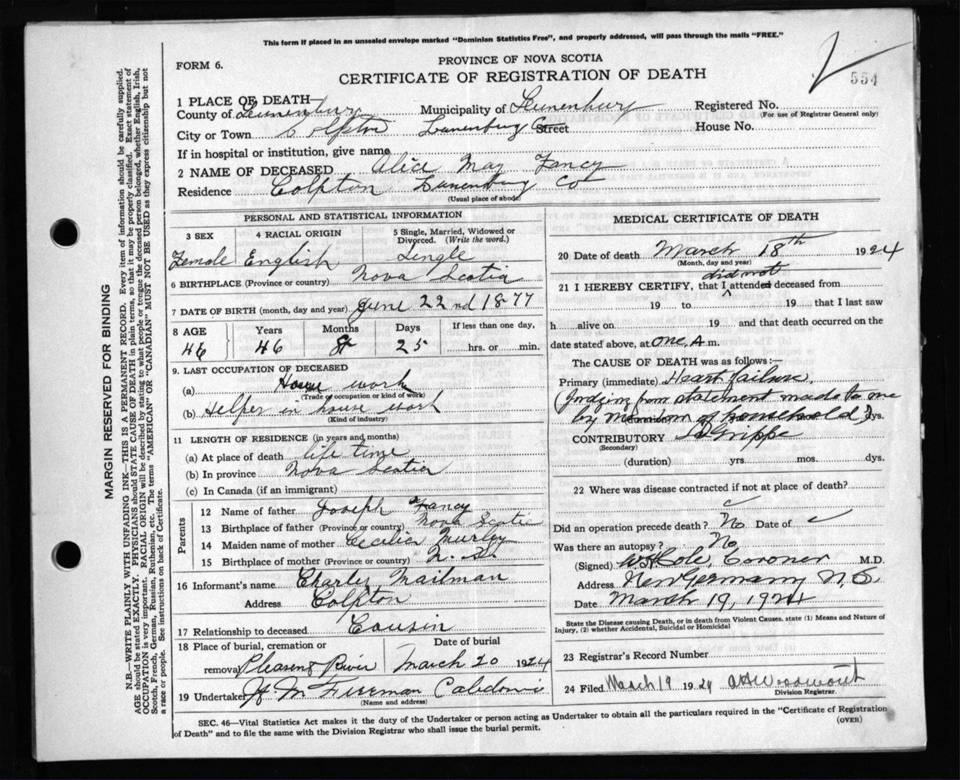 This form if placed in an unsealed envelope marked "Dominion Statistics Free", and properly addressed, will pass through the mails "FREE."
FORM 6.
PROVINCE OF NOVA SCOTIA
CERTIFICATE OF REGISTRATION OF DEATH
554
1 PLACE OF DEATH—
County of Lunenburg Municipality of Lunenburg Registered No.
(For use of Registrar General only)
City or Town Colpton Lunenburg Co Street House No.
If in hospital or institution, give name
2 NAME OF DECEASED Alice May Fancy
Residence Colpton Lunenburg Co
(Usual place of abode)
PERSONAL AND STATISTICAL INFORMATION
3 SEX 4 RACIAL ORIGIN 5 Single, Married, Widowed or Divorced. (Write the word.)
Female English Single
6 BIRTHPLACE (Province or country) Nova Scotia
7 DATE OF BIRTH (month, day and year) June 22nd 1877
8 AGE Years Months Days If less than one day,
46 46 8 25 hrs. or min.
9. LAST OCCUPATION OF DECEASED
(a) House work
(Trade or occupation or kind of work)
(b) Helper in house work
(Kind of industry)
11 LENGTH OF RESIDENCE (in years and months)
(a) At place of death life time
(b) In province Nova Scotia
(c) In Canada (if an immigrant)
Parents
12 Name of father Joseph Fancy
13 Birthplace of father (Province or country) Nova Scotia
14 Maiden name of mother Cecilia
15 Birthplace of mother (Province or country) N. S.
16 Informant's name Charley Mailman
Address Colpton
17 Relationship to deceased Cousin
18 Place of burial, cremation or removal Date of burial
Pleasent River March 20 1924
19 Undertaker M Freeman Caledonia
(Name and address)
MEDICAL CERTIFICATE OF DEATH
20 Date of death March 18th 1924
(Month, day and year)
did not
21 I HEREBY CERTIFY, that I attended deceased from
19 to 19 that I last saw
h alive on 19 and that death occurred on the
date stated above, at one, A.m.
The CAUSE OF DEATH was as follows:—
Primary (immediate) Heart failure.
(judging from statement made to me
by members of household) dys.
CONTRIBUTORY La Grippe
(Secondary)
(duration) yrs. mos. dys.
22 Where was disease contracted if not at place of death?
Did an operation precede death? No Date of
Was there an autopsy? No
(Signed) Cole, Coroner M.D.
Address New Germany N.S.
Date March 19, 1924
State the Disease causing Death, or in death from Violent Causes, state (1) Means and Nature of Injury, (2) whether Accidental, Suicidal or Homicidal
23 Registrar's Record Number
24 Filed March 19 1924
Division Registrar.
SEC. 46—Vital Statistics Act makes it the duty of the Undertaker or person acting as Undertaker to obtain all the particulars required in the "Certificate of Registration
of Death" and to file the same with the Division Registrar who shall issue the burial permit.
(OVER)
MARGIN RESERVED FOR BINDING
N.B.—WRITE PLAINLY WITH UNFADING INK—THIS IS A PERMANENT RECORD. Every item of information should be carefully supplied.
AGE should be stated EXACTLY. PHYSICIANS should STATE CAUSE OF DEATH in plain terms, so that it may be properly classified. Exact statement of
OCCUPATION is very important. RACIAL ORIGIN will be described by stating to what people or tongue the deceased person belonged, whether English, Irish,
Scotch, French, German, Russian, Ruthenian, etc. The terms "AMERICAN" or "CANADIAN" MUST NOT BE USED as they express citizenship but not
a race or people. See instructions on back of Certificate.